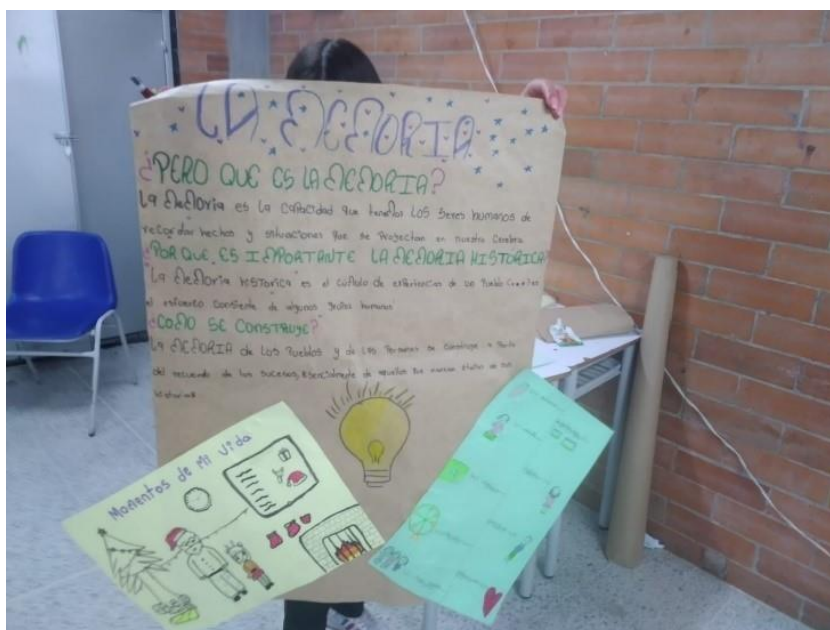 LA MEMORIA
¿PERO QUE ES LA MEMORIA?
La Memoria es la capacidad que tenemos LOS seres humanos de
recordar hechos y situaciones que se Proyectan en nuestro Cerebro
¿POR QUE, ES IMPORTANTE LA MEMORIA HISTORICA?
"La Memoria HISTORICA es el cúmulo de experiencias de un Pueblo
el esfuerzo consiente de algunos grupos humanos
¿COMO SE CONSTRUYE?
La MEMORIA de Los Pueblos y de las Personas se construye a Partir
del recuerdo de los sucesos, esencialmente de aquellos que marcan
historias
Momentos de Mi Vida